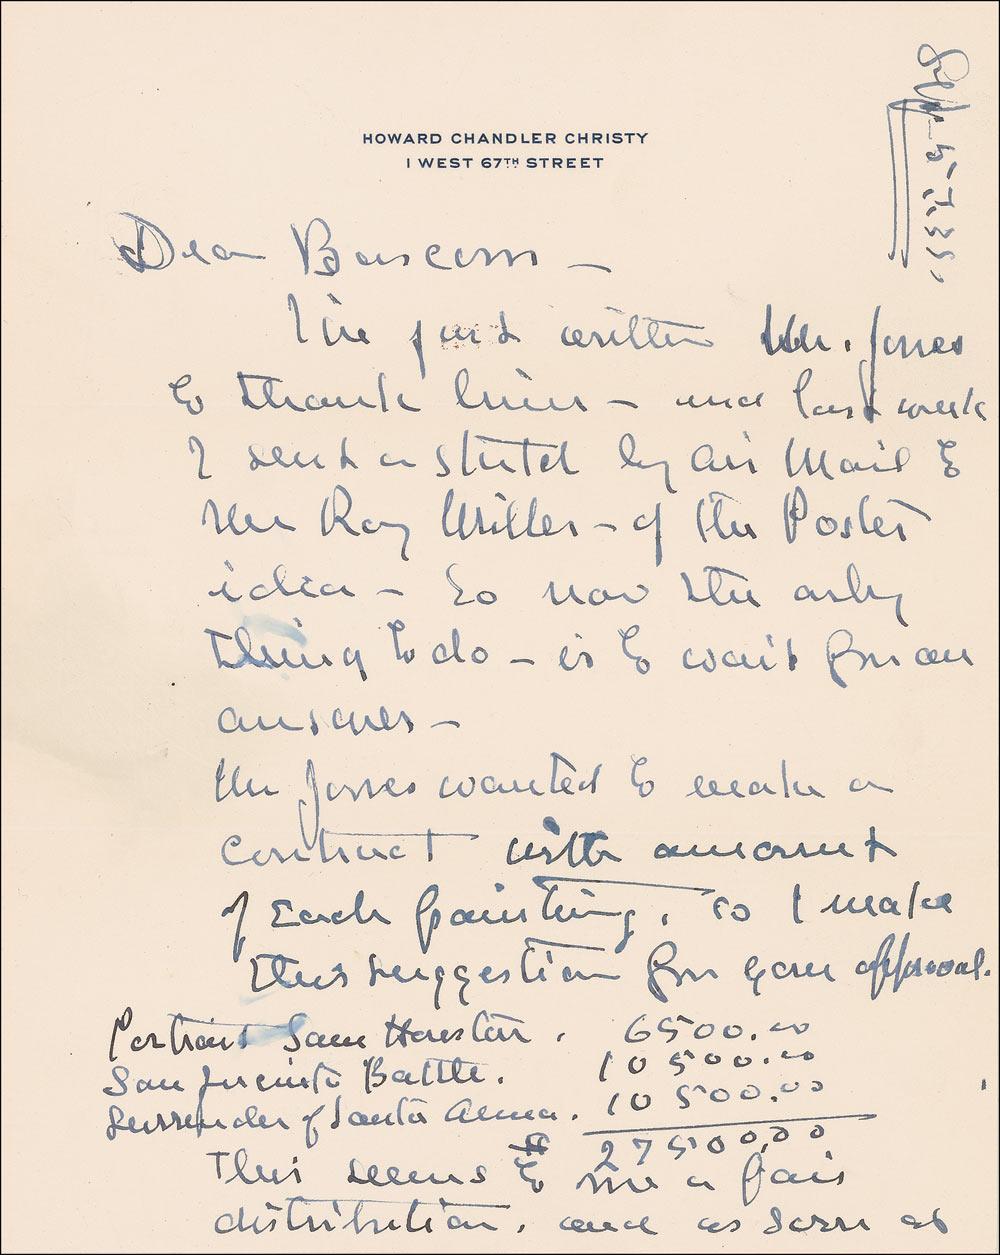 HOWARD CHANDLER CHRISTY
1 WEST 67TH STREET
Dear Bascom –
I've just written Mr. Jones
to thank him – and last week
I sent a sketch by Air Mail to
Mr Roy Miller – of the Poster
idea – So now the only
thing to do – is to wait for an
answer –
Mr Jones wanted to make a
contract with amount
of Each painting, so I make
this suggestion for your approval.
Portrait Sam Houston . 6500.00
San Jacinto Battle. 10500.00
Surrender of Santa Anna. 10500.00
$ 27500.00
This seems to me a fair
distribution, and as soon as